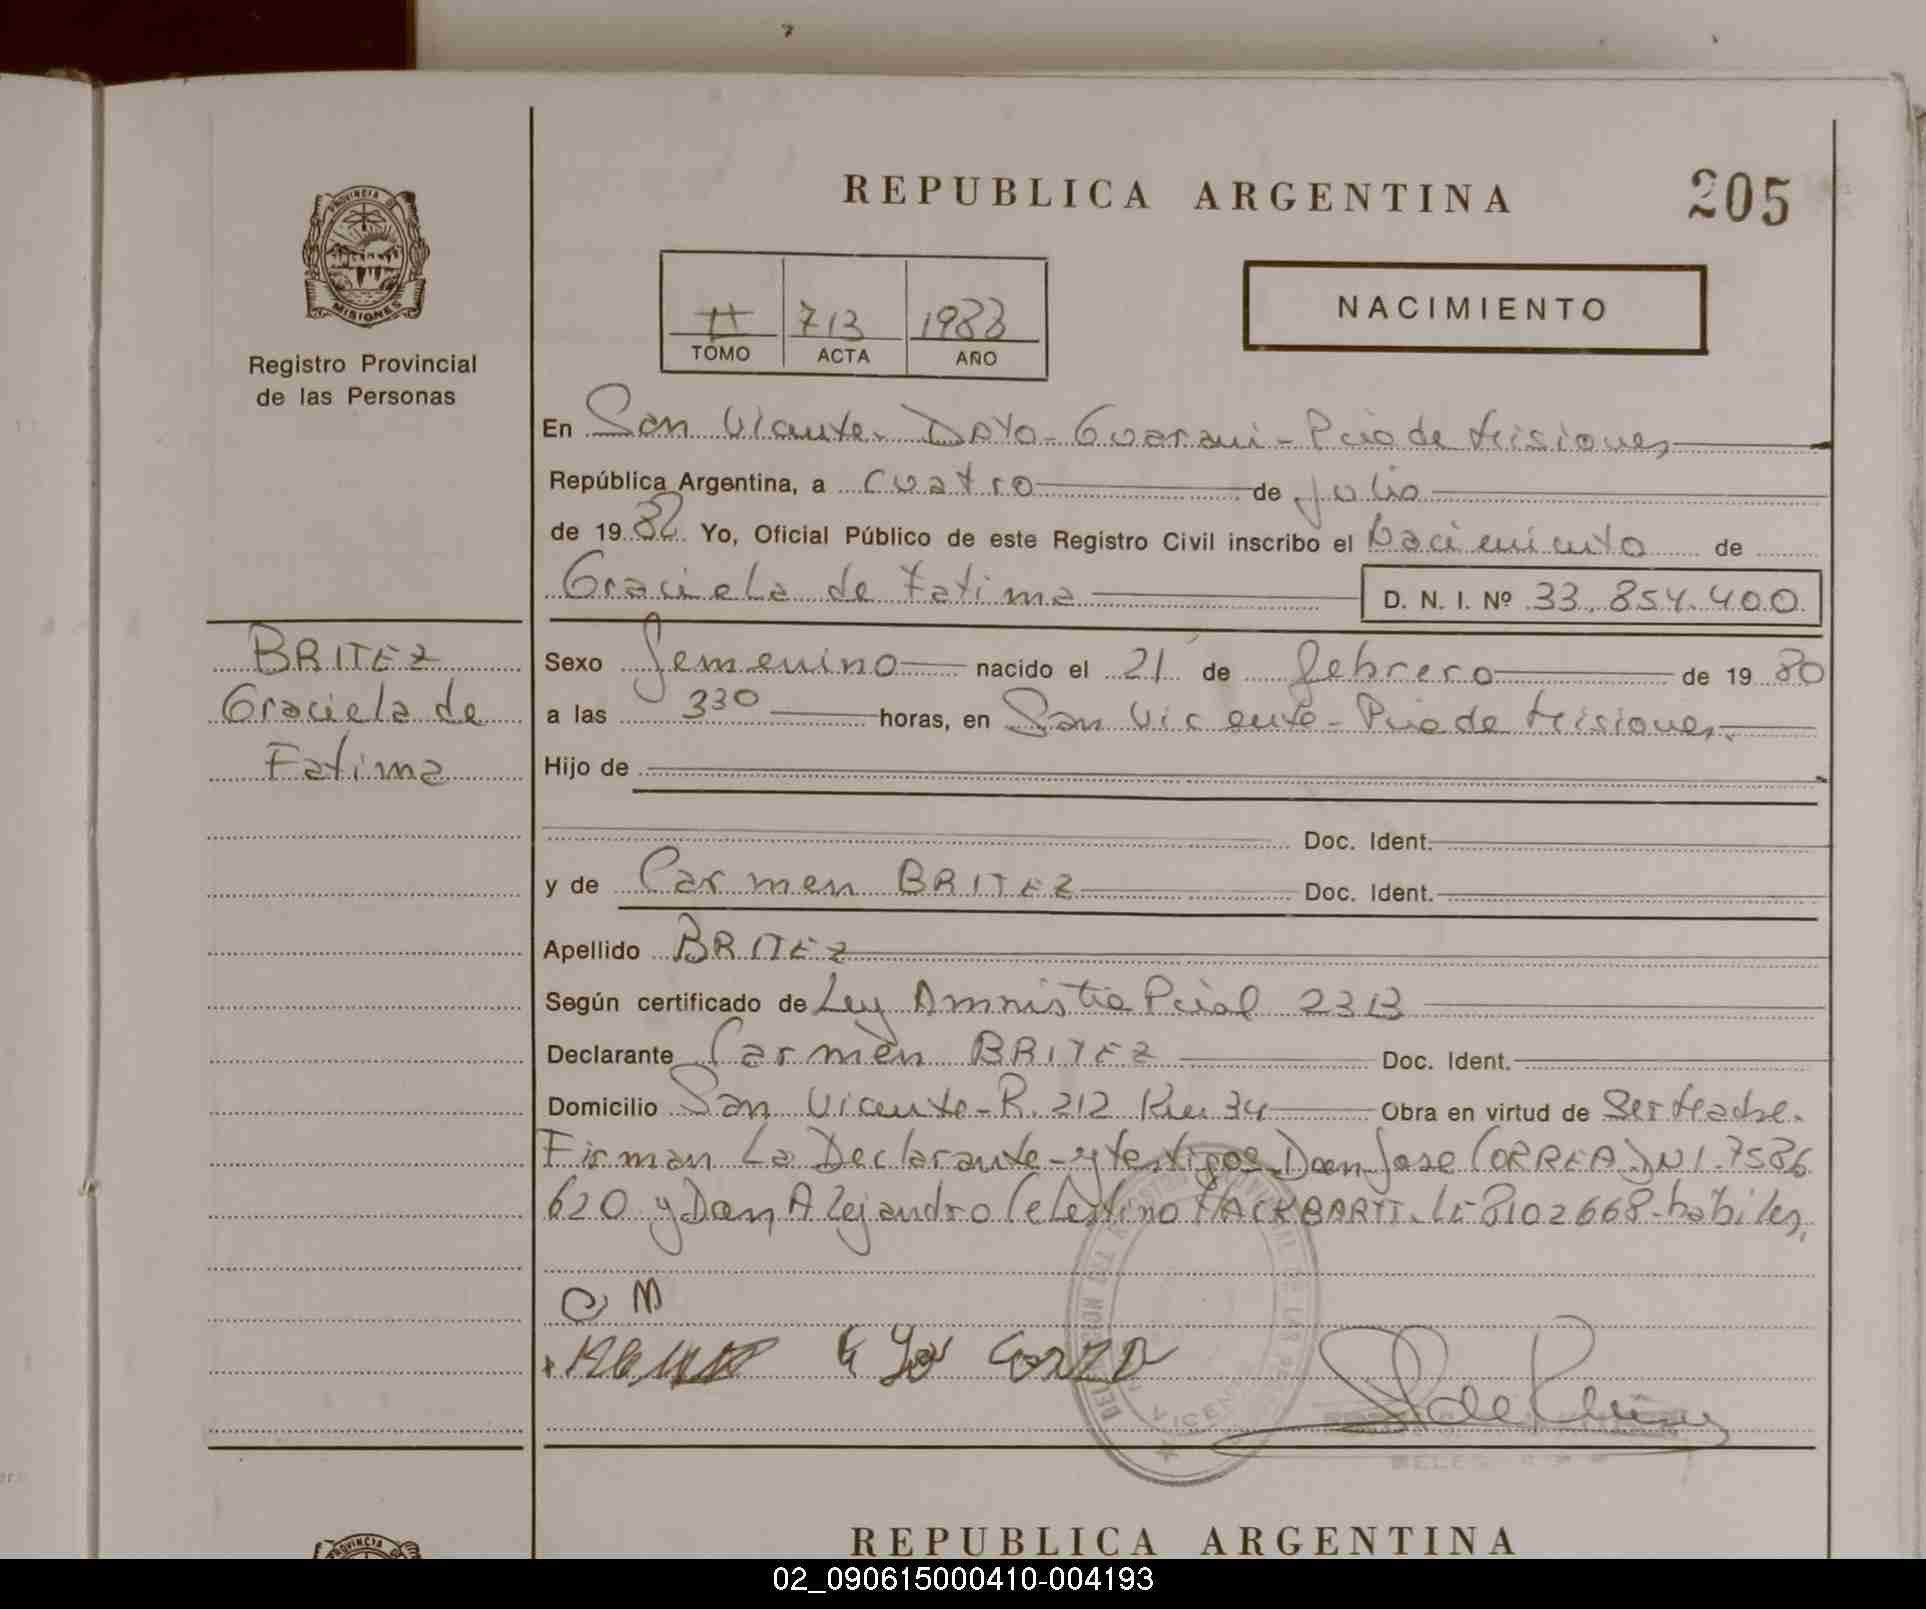 REPUBLICA ARGENTINA
205
PROVINCIA DE
MISIONES
Registro Provincial
de las Personas
II 713 1988
TOMO ACTA AÑO
NACIMIENTO
En San Vicente. Dpto- Guarani - Pcia de Misiones
República Argentina, a cuatro de julio
de 1988. Yo, Oficial Público de este Registro Civil inscribo el Nacimiento de
Graciela de Fatima D. N. I. Nº 33.854.400
BRITEZ
Graciela de
Fatima
Sexo femenino nacido el 21 de febrero de 1980
a las 330 horas, en San Vicente - Pcia de Misiones.
Hijo de
Doc. Ident.
y de Carmen BRITEZ Doc. Ident.
Apellido BRITEZ
Según certificado de Ley Amnistia Pcial 2313
Declarante Carmen BRITEZ Doc. Ident.
Domicilio San Vicente - R. 212 Km 34 Obra en virtud de Ser Madre.
Firman La Declarante - y testigos Don Jose CORREA DNI. 7586
620 y Don Alejandro Celestino HACKBARTT. LE 8102668 - habiles,
VICENTE
REPUBLICA ARGENTINA
PROVINCIA
02_090615000410-004193